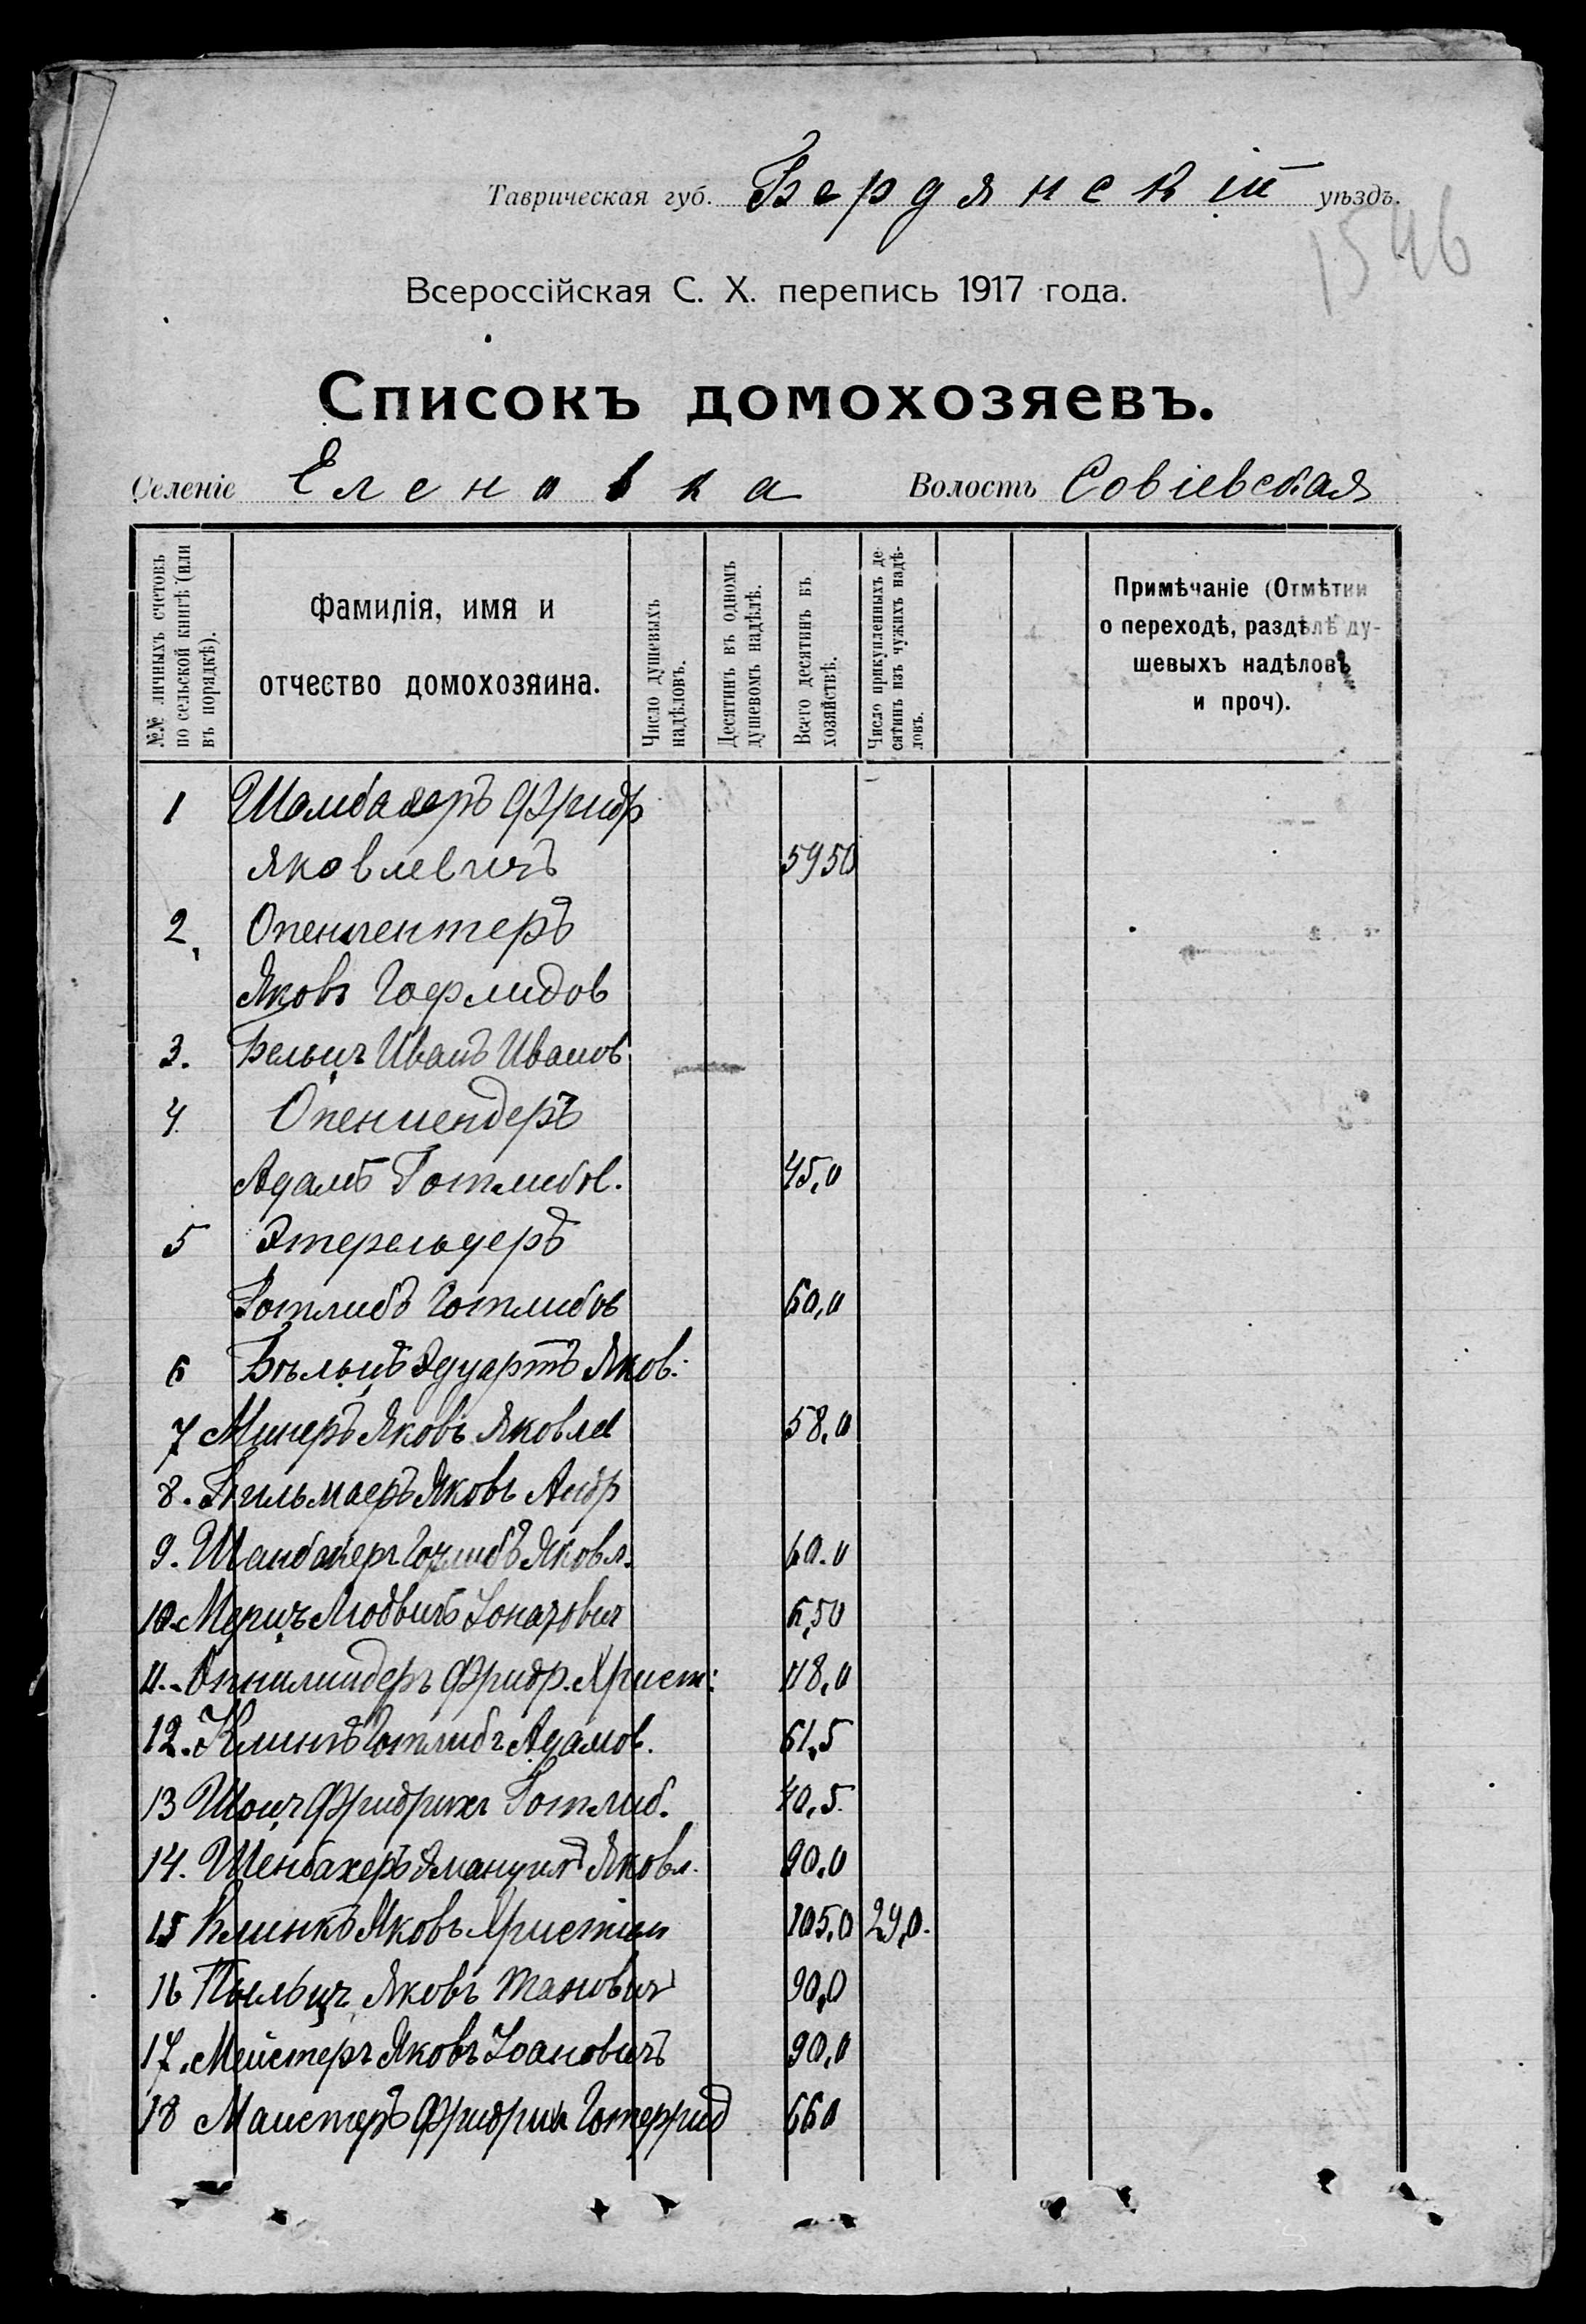 Таврическая губ. Бердянскій уѣздъ.
1546
Всероссійская С. Х. перепись 1917 года.
Списокъ домохозяевъ.
Селеніе Еленовка Волость Совіевская
№№ личныхъ счетовъ по сельской книгѣ (или въ порядкѣ).
Фамилія, имя и отчество домохозяина.
Число душевыхъ надѣловъ.
Десятинъ въ одномъ душевомъ надѣлѣ.
Всего десятинъ въ хозяйствѣ.
Число прикупленныхъ десятинъ изъ чужихъ надѣловъ.
Примѣчаніе (Отмѣтки о переходѣ, раздѣлѣ душевыхъ надѣловъ и проч).
1 Шамбахеръ Фридр
Яковлевичъ 5950
2, Опенлентеръ
Яковъ Гофлидов
3. Бельцъ Иванъ Иванов
4. Опенлендеръ
Адамъ Готлибов. 45,0
5
Готлибъ Готлибов 60,0
6 Бѣльцъ Эдуартъ Яков:
7 Минеръ Яковъ Яковлев 58,0
8. Яковъ Андр
9. Шанбахеръ Яковл. 60.0
10. Мерцъ Людвигъ 6,50
11. Фридр. Христ: 48,0
12. Клинкъ Готлибъ Адамов. 61,5
13 Шоцъ Фридрихъ Готлиб. 40,5.
14. Шенбахеръ Эмануилъ Яковл. 90,0
15 Клинкъ Яковъ Христіан 105,0 29,0.
16 Яковъ 90,0
17. Мейстеръ Яковъ Іоановичъ 90,0
18 Маистеръ Фридрих 660